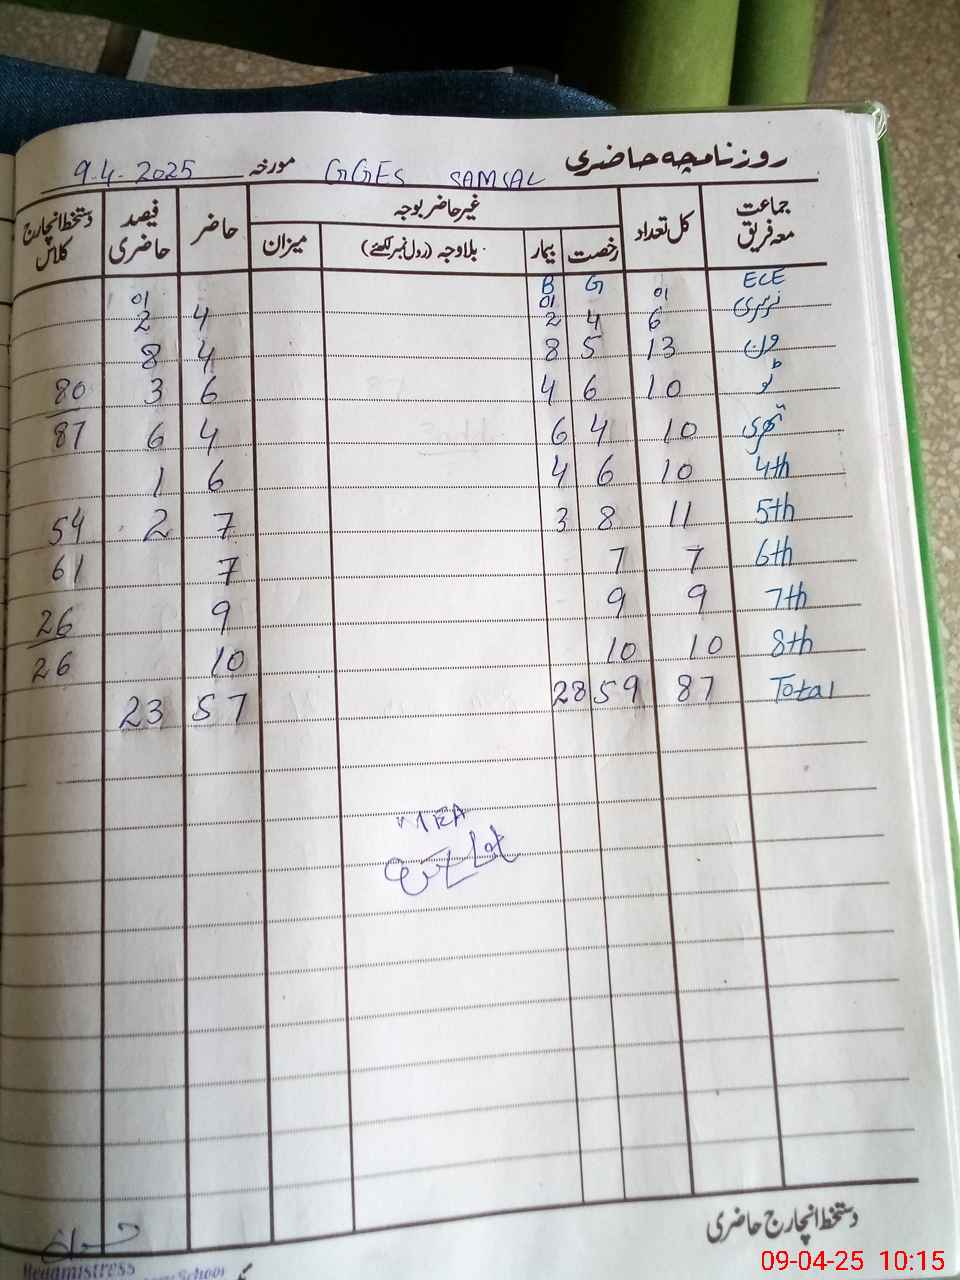 روزنامچہ حاضری GGES SAMSAL مورخہ 9.4.2025
جماعت معہ فریق کل تعداد غیر حاضر بوجہ حاضر فیصد حاضری دستخط انچارج کلاس
رخصت بیمار بلاوجہ (رول نمبر لکھئے) میزان
ECE 01 G B 01 01
نرسری 6 4 2 4 2
ون 13 5 8 4 8
ٹو 10 6 4 6 3 80
تھری 10 4 6 4 6 87
4th 10 6 4 6 1
5th 11 8 3 7 2 54
6th 7 7 7 61
7th 9 9 9 26
8th 10 10 10 26
Total 87 59 28 57 23
MEA
دستخط انچارج حاضری
Headmistress
School
09-04-25 10:15